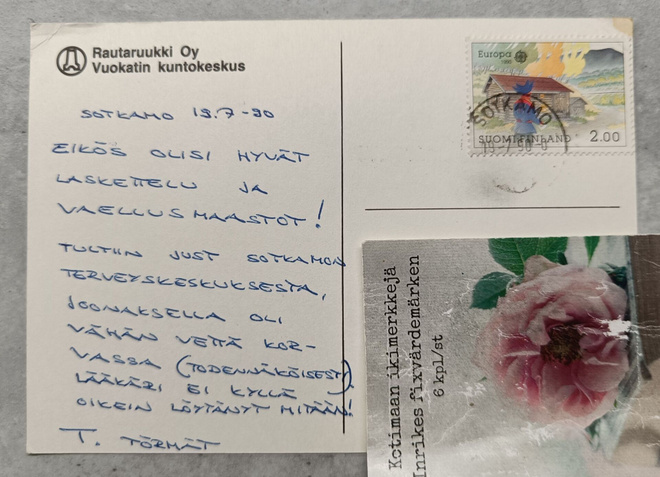 Rautaruukki Oy
Vuokatin kuntokeskus
SOTKAMO 19.7-90
EIKÖS OLISI HYVÄT
LASKETTELU JA
VAELLUSMAASTOT!
TULTIIN JUST SOTKAMON
TERVEYSKESKUKSESTA,
JOONAKSELLA OLI
VÄHÄN VETTÄ KOR-
VASSA (TODENNÄKÖISESTI)
LÄÄKÄRI EI KYLLÄ
OIKEIN LÖYTÄNYT MITÄÄN!
T. TÖRMÄT
Europa
1990
SOTKAMO
SUOMI FINLAND 2.00
Kotimaan ikimerkkejä
Inrikes fixvärdemärken
6 kpl/st